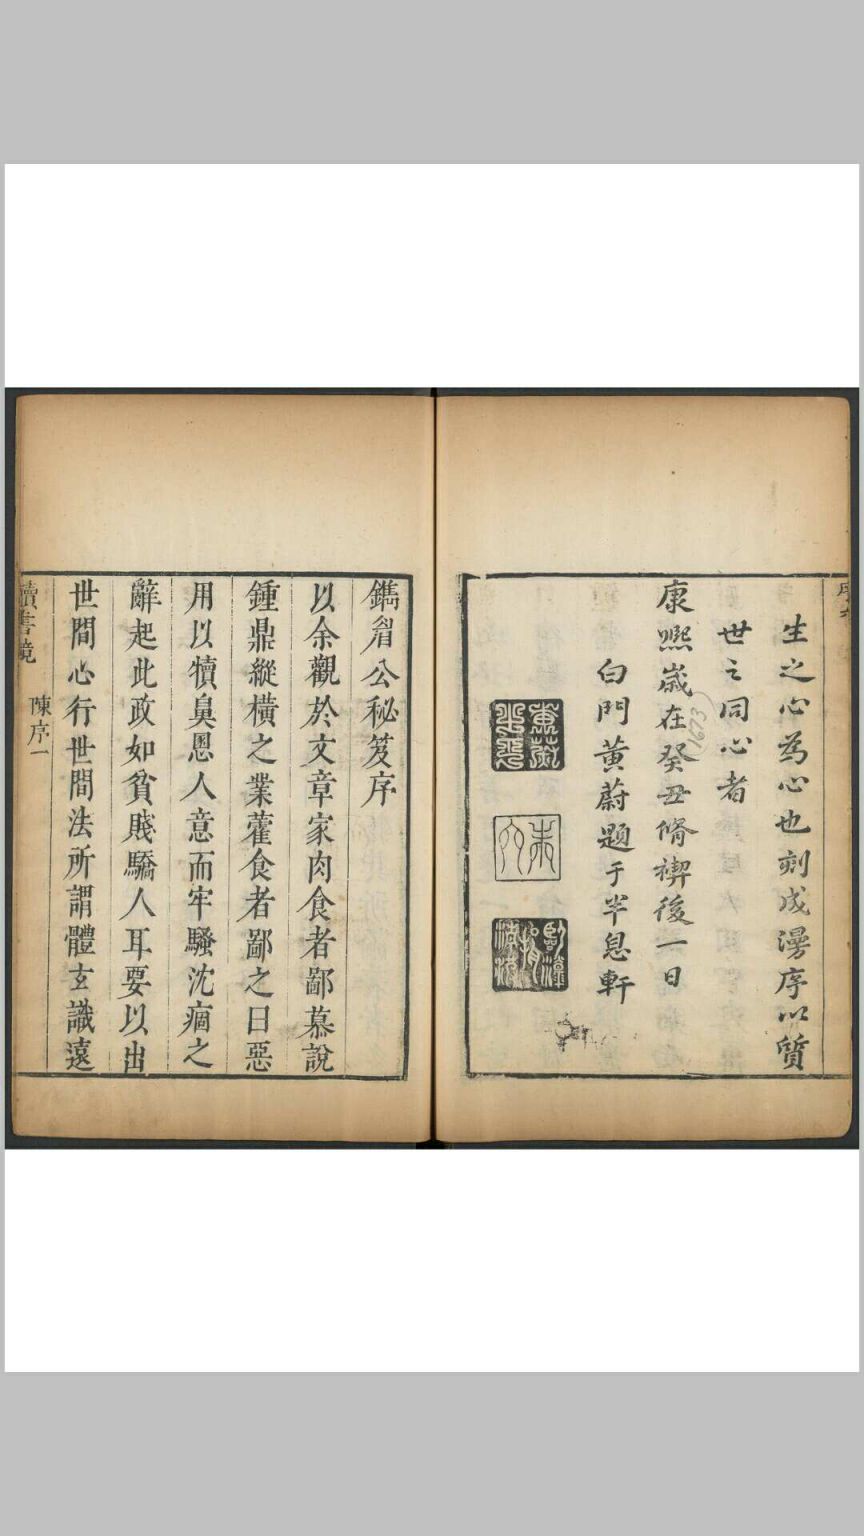 生之心為心也刻成漫序以質
世之同心者
康熈嵗在癸丑脩禊後一日
(1673)
白門黃蔚題于半息軒
鐫眉公秘笈序
以余觀於文章家肉食者鄙慕說
鍾鼎縱橫之業藿食者鄙之曰惡
用以犢鼻慁人意而牢騷沈痼之
辭起此政如貧賤驕人耳要以出
世間心行世間法所謂體玄識遠
讀書鏡
陳序一